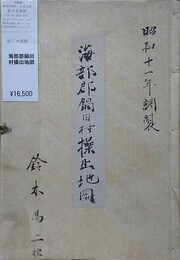 昭和十一年調製
海部郡鍋田村操出地図
鈴木馬二
海部郡鍋田
村操出地図
¥16,500